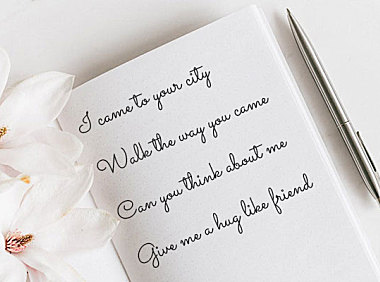 I came to your city
Walk the way you came
Can you think about me
Give me a hug like friend